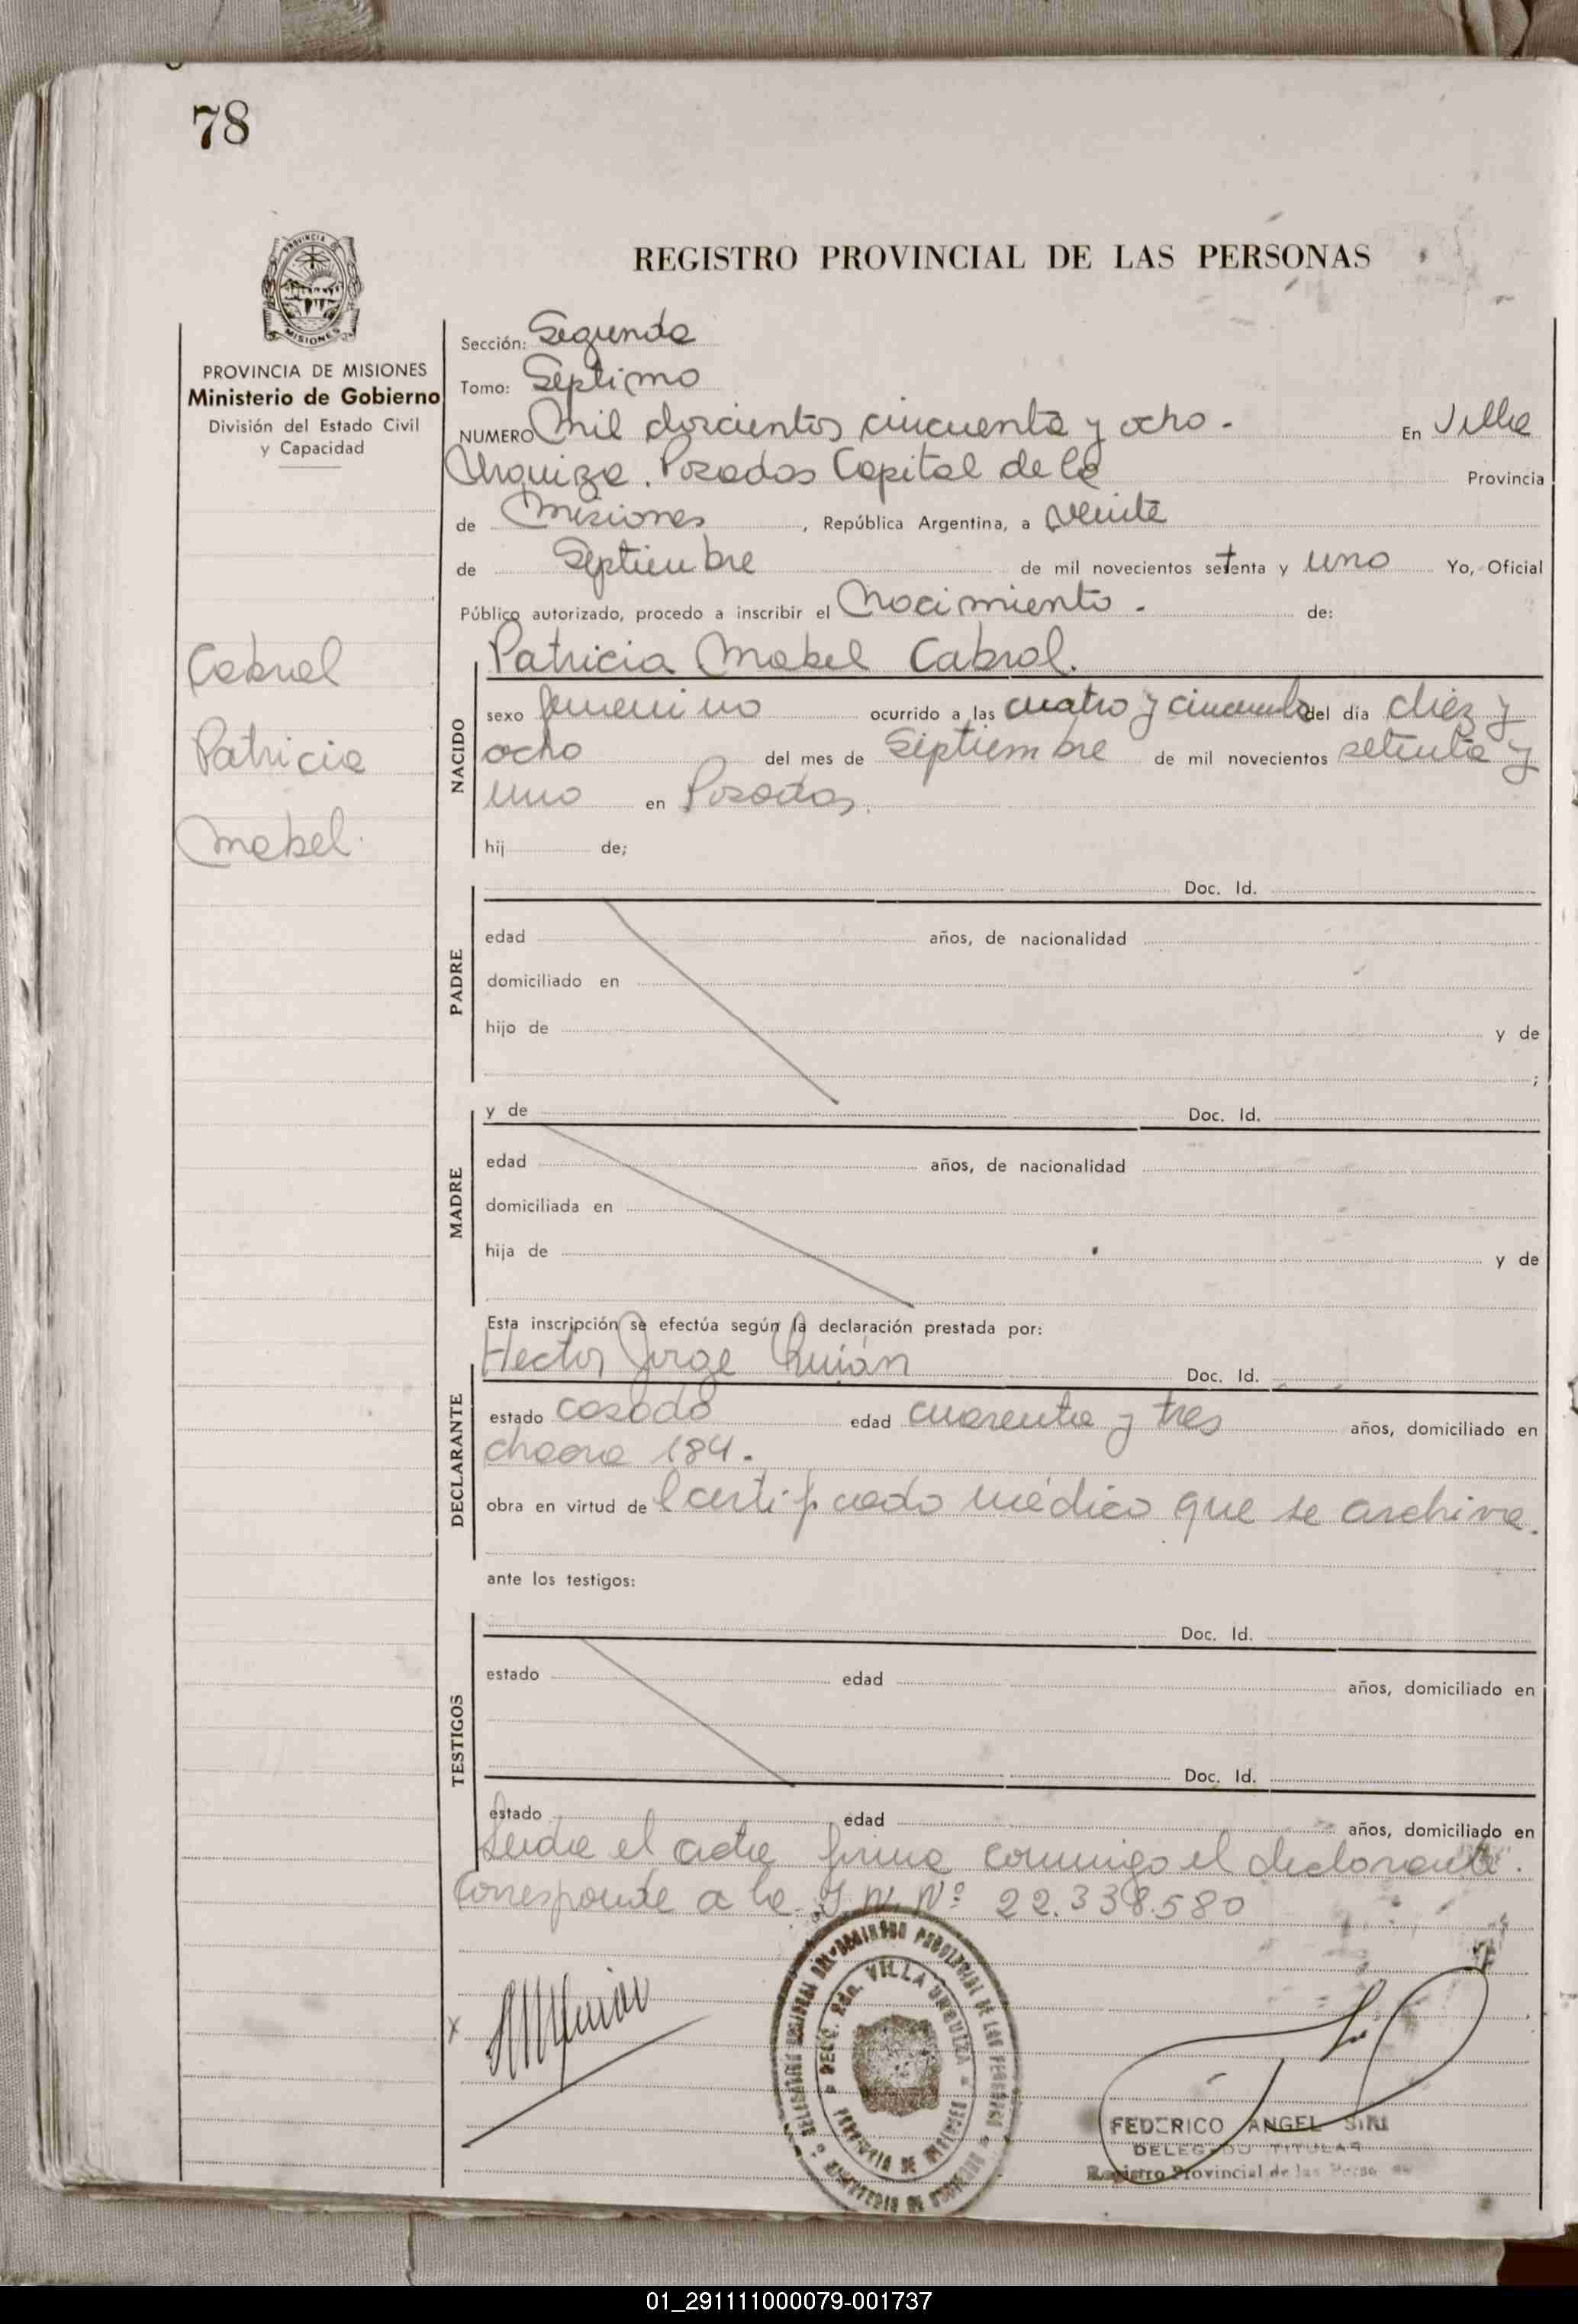 78
REGISTRO PROVINCIAL DE LAS PERSONAS
PROVINCIA DE
MISIONES
PROVINCIA DE MISIONES
Ministerio de Gobierno
División del Estado Civil
y Capacidad
Cabral
Patricia
Mabel.
Sección: Segunda
Tomo: Septimo
NUMERO Mil doscientos cincuenta y ocho. En Villa
Urquiza. Posadas Capital de la Provincia
de Misiones, República Argentina, a veinte
de Septiembre de mil novecientos setenta y uno Yo, Oficial
Público autorizado, procedo a inscribir el Nacimiento. de:
NACIDO
Patricia Mabel Cabral.
sexo femenino ocurrido a las cuatro y cincuenta del día diez y
ocho del mes de Septiembre de mil novecientos setenta y
uno en Posadas.
hij de;
PADRE
Doc. Id.
edad años, de nacionalidad
domiciliado en
hijo de y de
;
MADRE
y de Doc. Id.
edad años, de nacionalidad
domiciliada en
hija de y de
Esta inscripción se efectúa según la declaración prestada por:
DECLARANTE
Hector Jorge Doc. Id.
estado casado edad cuarenta y tres años, domiciliado en
chacra 184.
obra en virtud de l certificado médico que se archiva.
ante los testigos:
TESTIGOS
Doc. Id.
estado edad años, domiciliado en
Doc. Id.
estado edad años, domiciliado en
Leida el acta firma conmigo el declarante.
Corresponde a la N° 22.338.580
DELEC. Rda. VILLA URQUIZA
PROVINCIA DE MISIONES
FEDERICO ANGEL SIRI
DELEGADO TITULAR
Registro Provincial de las
01_291111000079-001737